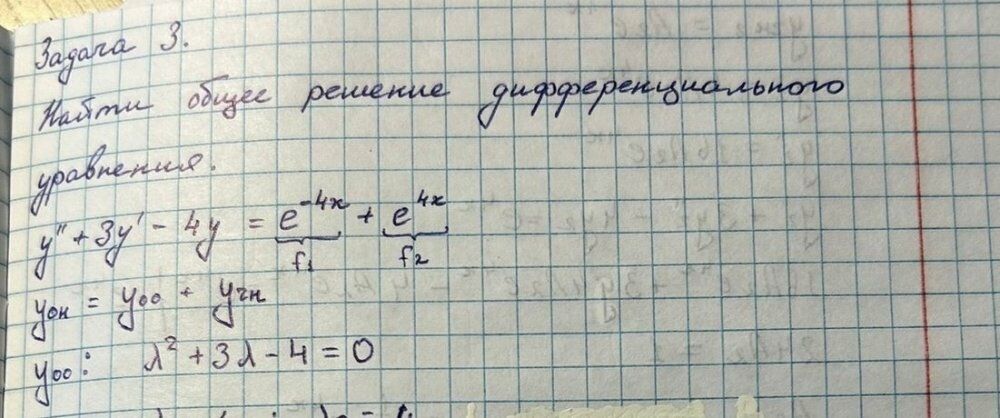 Задача 3.
Найти общее решение дифференциального
уравнения.
y'' + 3y' - 4y = e^{-4x} + e^{4x}
f₁ f₂
yон = yоо + yчн
yоо: λ² + 3λ - 4 = 0